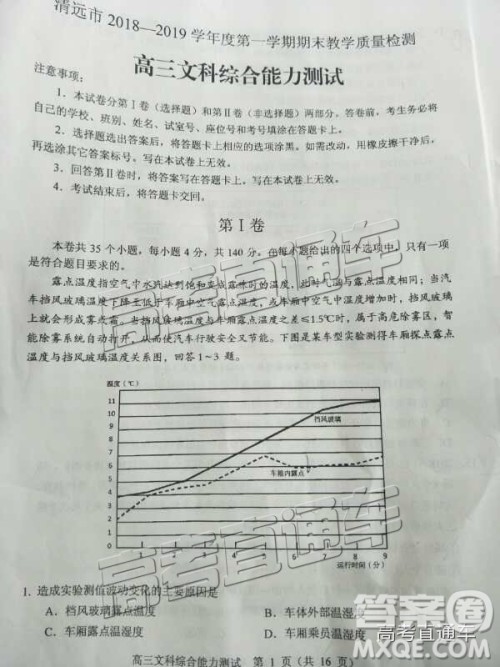 清远市 2018—2019 学年度第一学期期末教学质量检测
高三文科综合能力测试
注意事项：
1. 本试卷分第Ⅰ卷（选择题）和第Ⅱ卷（非选择题）两部分。答卷前，考生务必将
自己的学校、班别、姓名、试室号、座位号和考号填涂在答题卡上。
2. 选择题选出答案后，将答题卡上相应的选项涂黑。如需改动，用橡皮擦干净后，
再选涂其它答案标号。写在本试卷上无效。
3. 回答第Ⅱ卷时，将答案写在答题卡上，写在本试卷上无效。
4. 考试结束后，将答题卡交回。
第Ⅰ卷
本卷共 35 个小题，每小题 4 分，共 140 分。在每小题给出的四个选项中，只有一项
是符合题目要求的。
露点温度指空气中水汽达到饱和变成露珠时的温度，此时气温与露点温度相同；当汽
车挡风玻璃温度下降至低于车厢中空气露点温度，或车厢中空气中湿度增加时，挡风玻璃
上就会形成雾或霜。当挡风玻璃温度与车厢露点温度之差≤1.5℃时，属于高危除雾区，智
能除雾系统自动打开，从而使汽车行驶安全又节能。下图是某车型实验测得车厢探点露点
温度与挡风玻璃温度关系图，回答 1～3 题。
温度（℃）
11
10
9
8
7
6
5
4
3
2
1
0
挡风玻璃
车厢内露点
0 1 2 3 4 5 6 7 8 9
运行时间（分）
1. 造成实验测值波动变化的主要原因是
A．挡风玻璃露点温度 B．车体外部温湿度
C．车厢露点温度 D．车厢乘员温湿度
高三文科综合能力测试 第 1 页（共 16 页）
高考直通车
高考直通车
答案圈
高考直通车